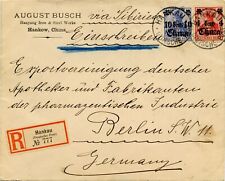 AUGUST BUSCH
Hanyang Iron & Steel Works
Hankow, China
via Sibirien
Einschreiben
China
China
Exportvereinigung deutscher
Apotheker und Fabrikanten
der pharmazeutischen Industrie
Berlin S.W. 11.
Germany
R
Hankau
№ 777